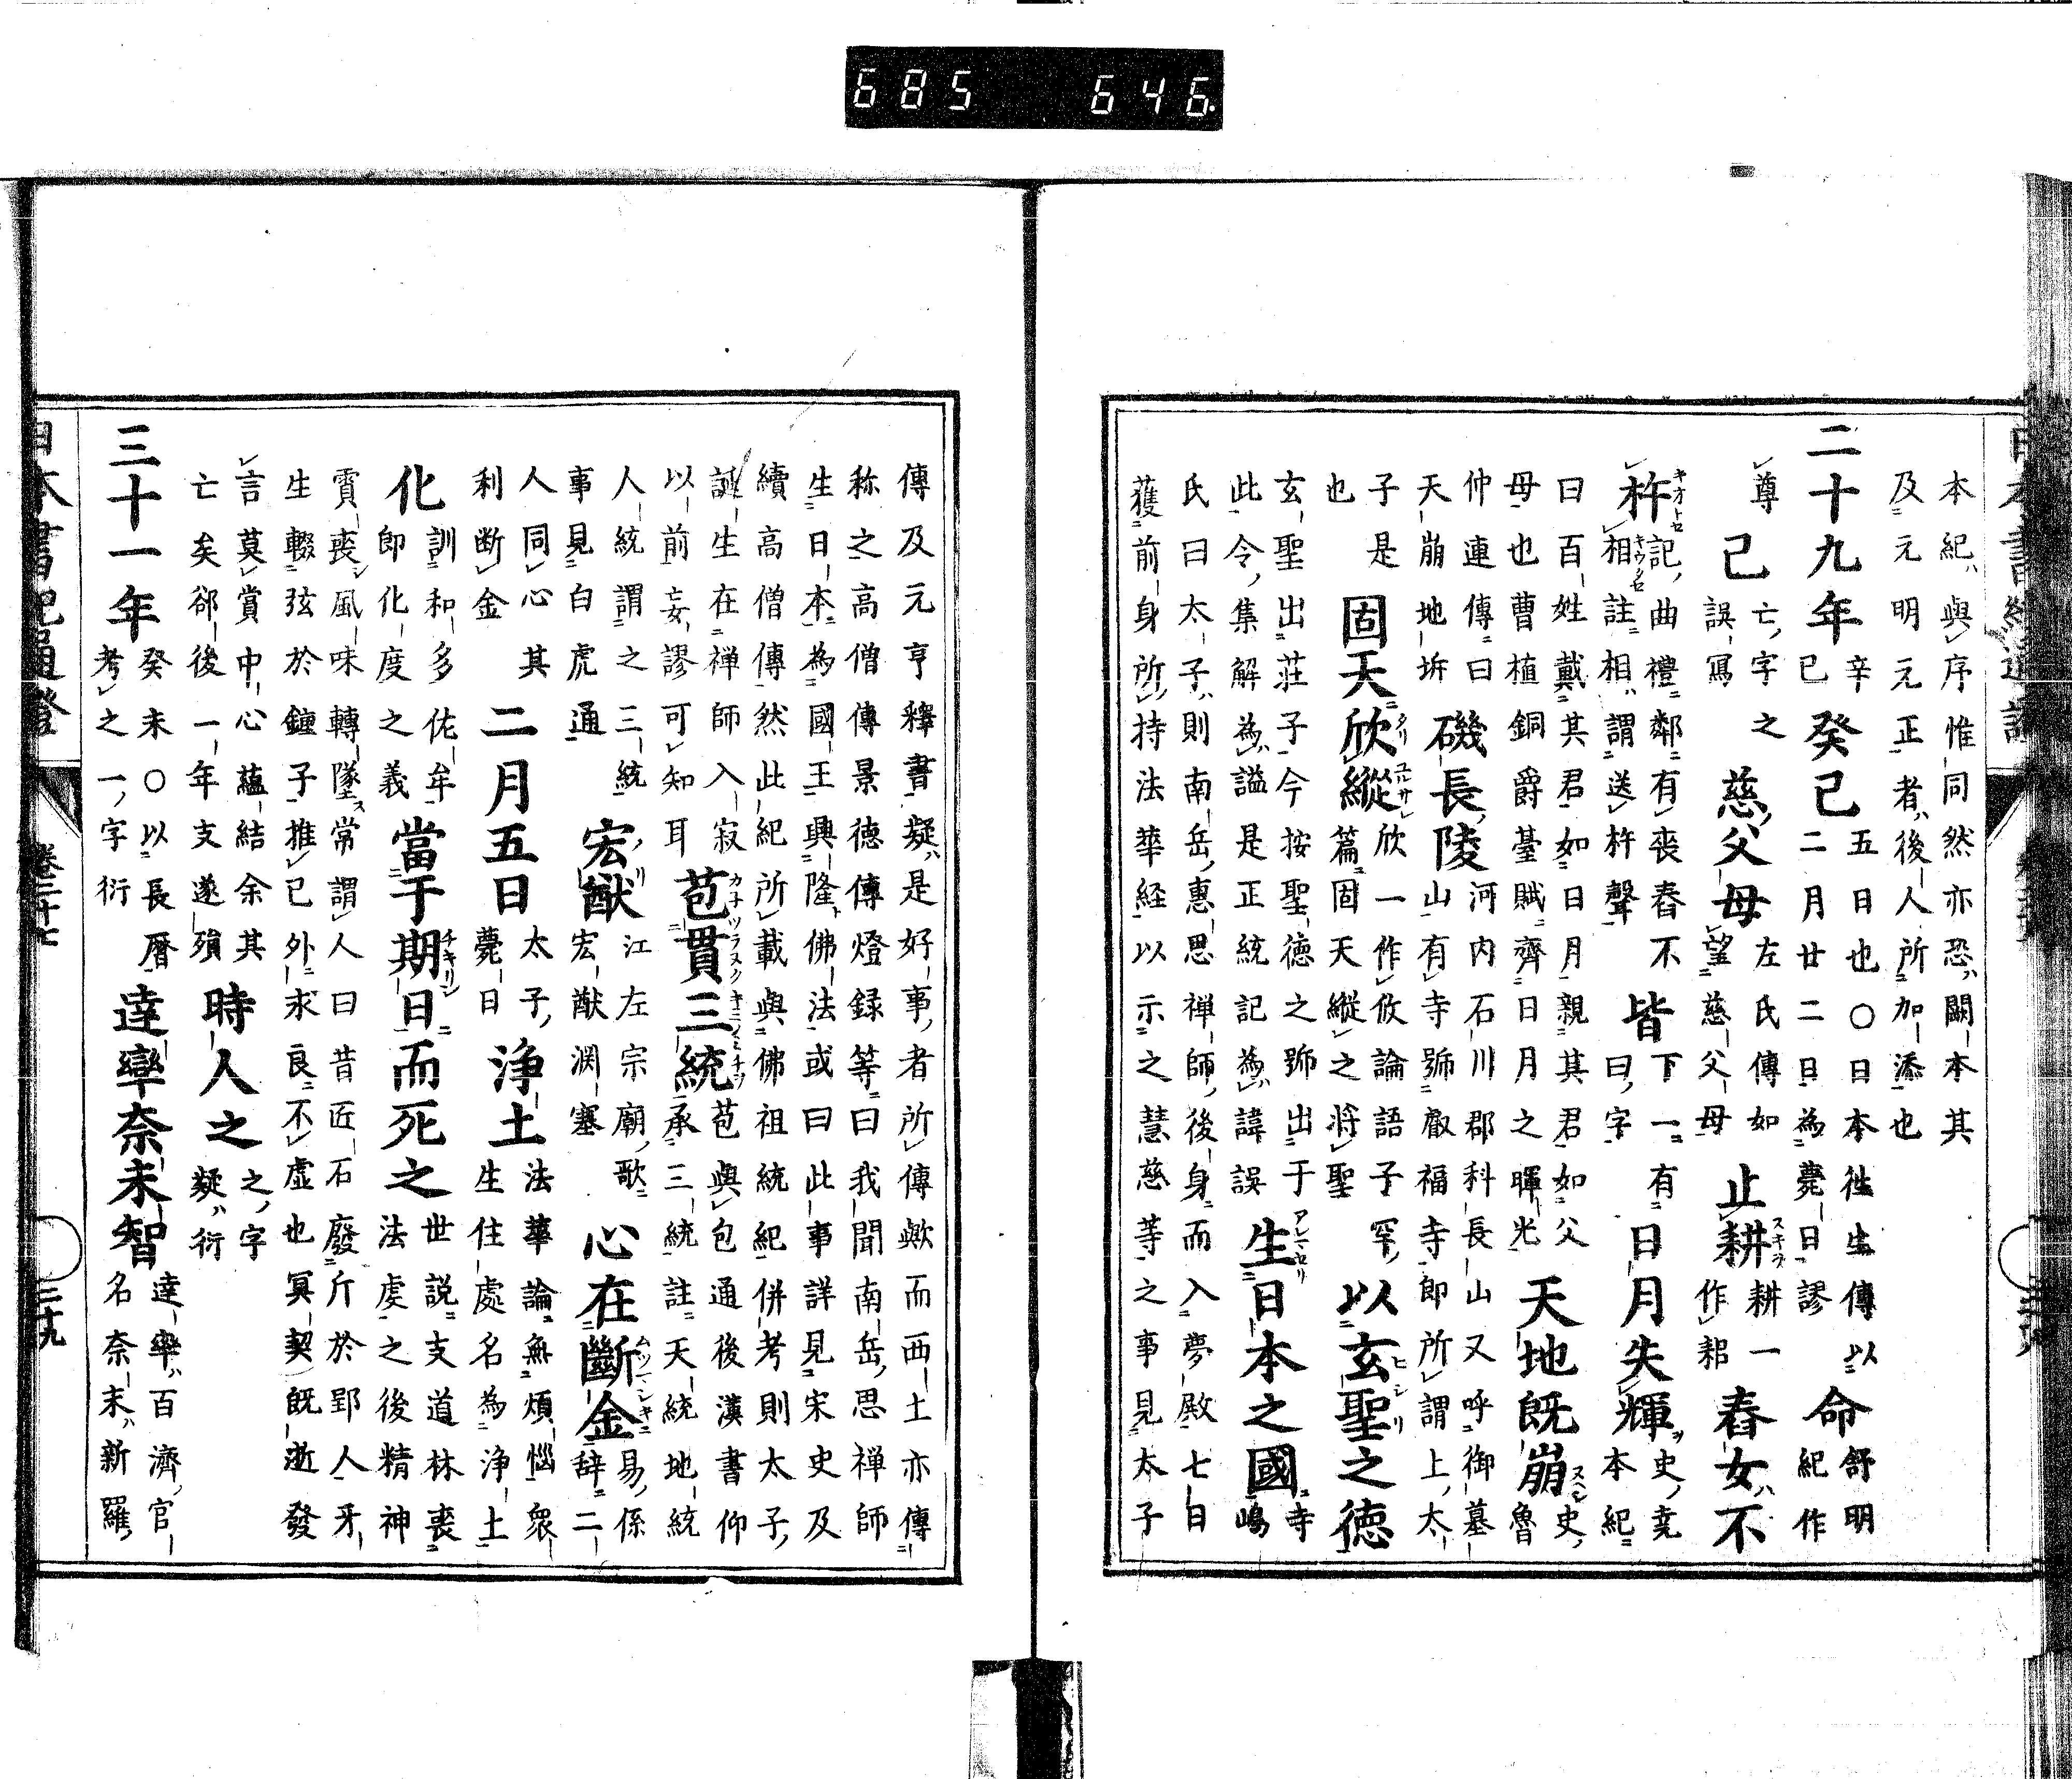 本紀與序惟同然亦恐闕本其
及元明元正者後人所加添也
二十九年辛巳癸巳五日也〇日本往生傳以二月廿二日為薨日謬命舒明紀作
尊己亡字之誤寫慈父母左氏傳如望慈父母止耕耕一作耜舂女不
杵記曲禮鄰有喪舂不相註相謂送杵聲皆下一有曰字日月失輝史堯本紀
曰百姓戴其君如日月親其君如父母也曹植銅爵臺賦齊日月之暉光天地既崩史魯
仲連傳曰天崩地坼磯長陵河内石川郡科長山又呼御墓山有寺號叡福寺即所謂上太
子是也固天欣縱欣一作攸論語子罕篇固天縱之將聖以玄聖之徳
玄聖出莊子今按聖徳之號出于此令集解為謚是正統記為諱誤生日本之國寺嶋
氏曰太子則南岳惠思禅師後身而入夢殿七日
獲前身所持法華経以示之慧慈等之事見太子
傳及元亨釋書疑是好事者所傳歟而西土亦傳
称之高僧傳景徳傳燈録等曰我聞南岳思禅師
生日本為國王興隆佛法或曰此事詳見宋史及
續高僧傳然此紀所載與佛祖統紀併考則太子
誕生在禅師入寂以前妄謬可知耳苞貫三統苞與包通後漢書仰承三統註天統地統
人統謂之三統事見白虎通宏猷江左宗廟歌宏猷淵塞心在斷金易係辞二
人同心其利断金二月五日太子薨日浄土法華論無煩惱衆生住處名為浄土
化訓和多佐牟即化度之義當于期日而死之世説支道林喪法虔之後精神
霣喪風味轉墜常謂人曰昔匠石廢斤於郢人牙
生輟弦於鐘子推己外求良不虚也冥契既逝發
言莫賞中心蘊結余其亡矣郤後一年支遂殞時人之之字疑衍
三十一年癸未〇以長厤考之一字衍達率奈末智達率百濟官名奈末新羅
日本書紀通證
卷二十七
二十九
685 646